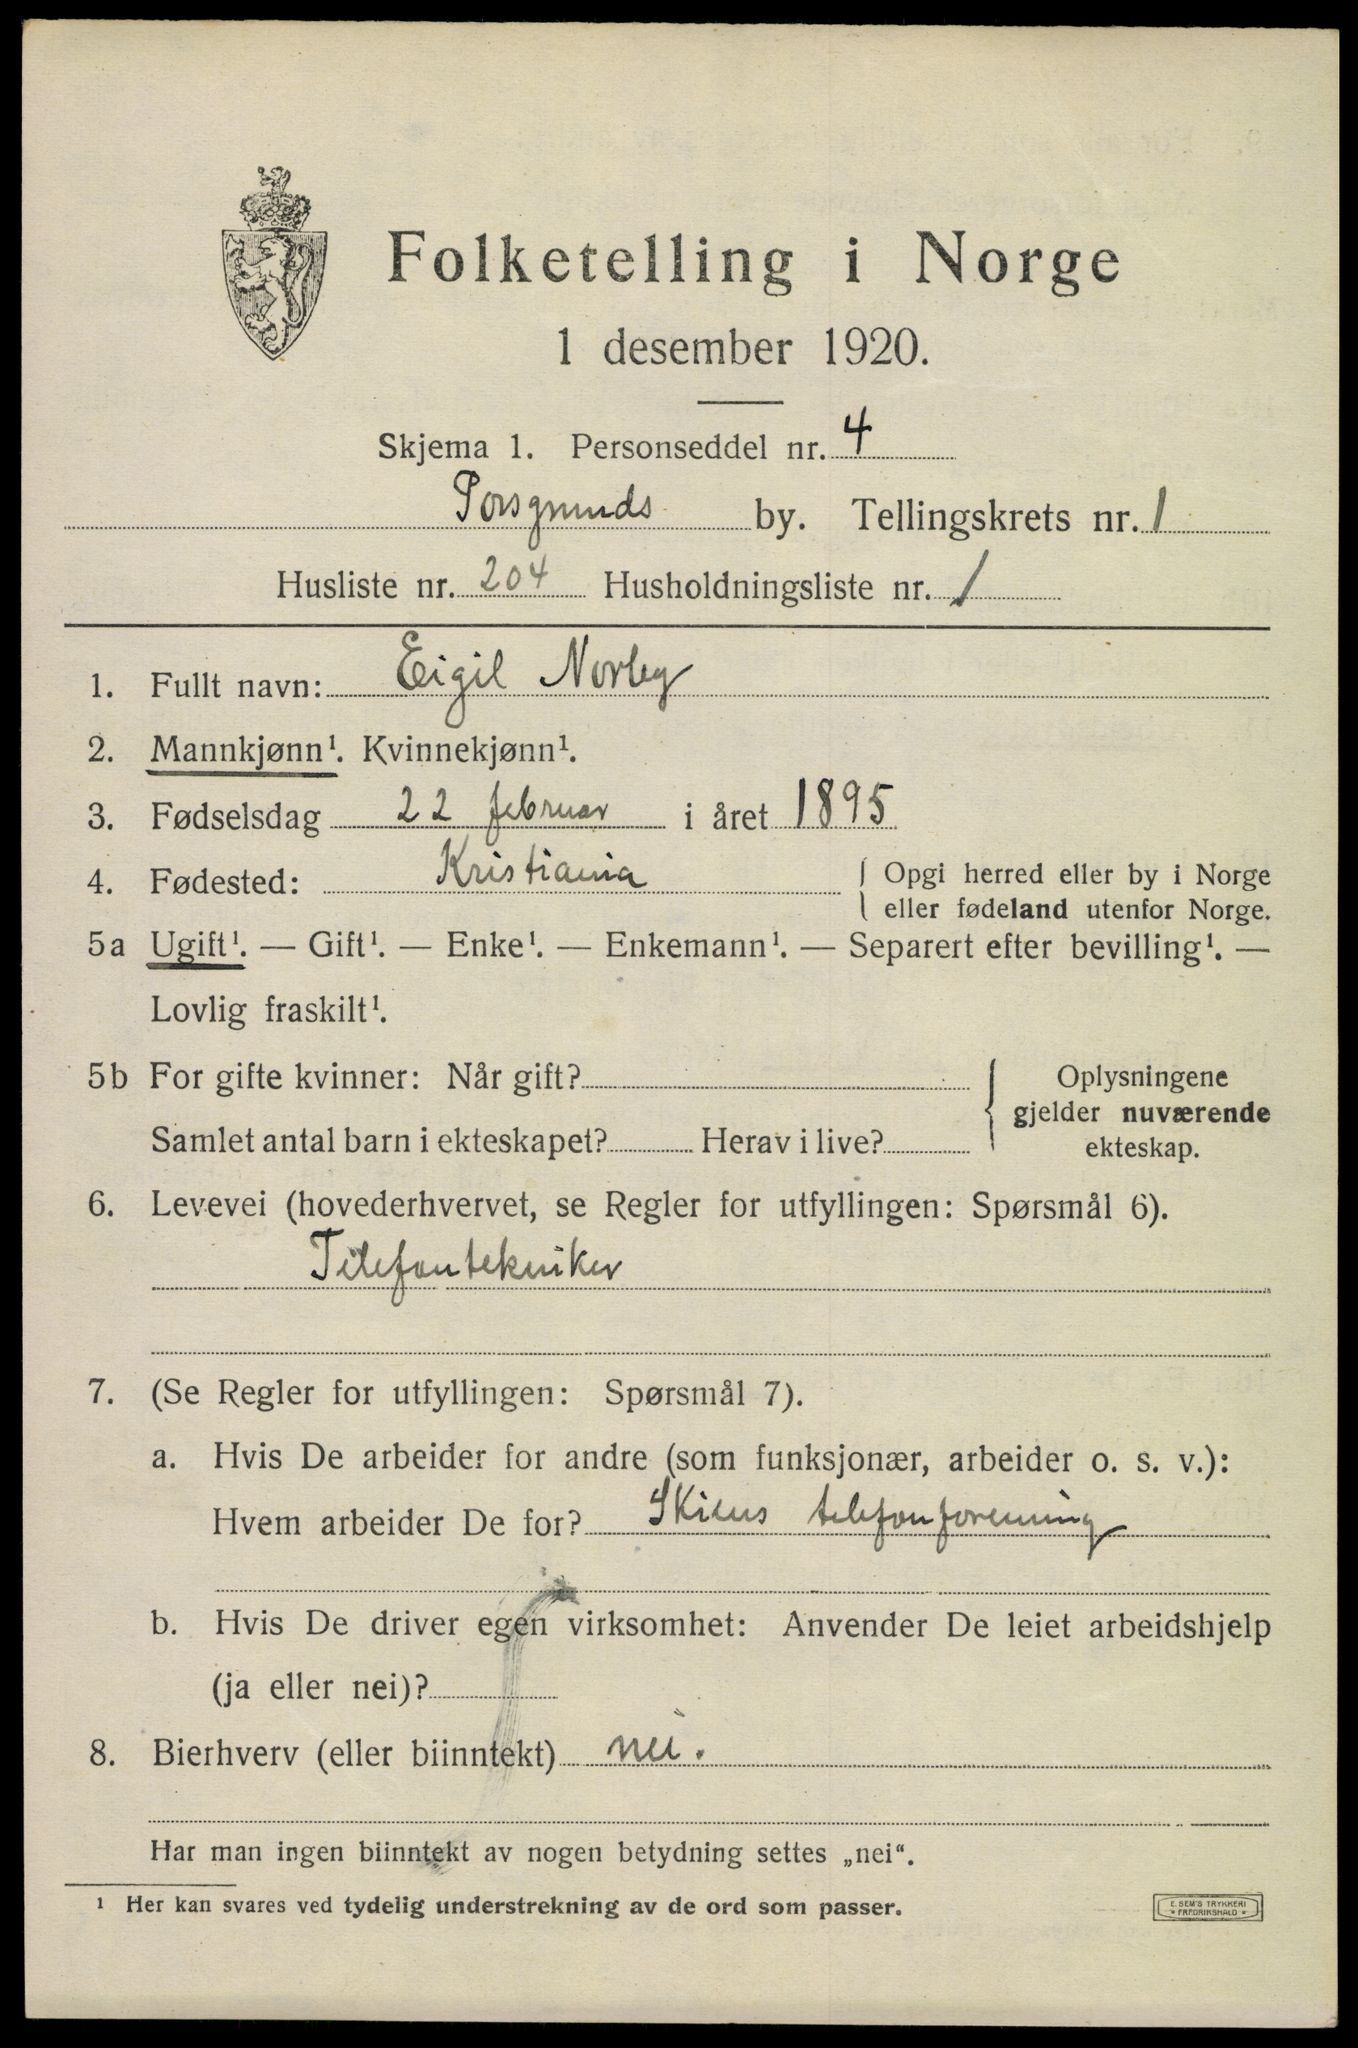 Folketelling i Norge
1 desember 1920.
Skjema 1. Personseddel nr. 4
Porsgrunds by. Tellingskrets nr. 1
Husliste nr. 204 Husholdningsliste nr. 1
1. Fullt navn: Eigil Norby
2. Mannkjønn¹. Kvinnekjønn¹.
3. Fødselsdag 22 februar i året 1895
4. Fødested: Kristiania { Opgi herred eller by i Norge
eller fødeland utenfor Norge.
5a Ugift¹. — Gift¹. — Enke¹. — Enkemann¹. — Separert efter bevilling¹. —
Lovlig fraskilt¹.
5b For gifte kvinner: Når gift? { Oplysningene
gjelder nuværende
Samlet antal barn i ekteskapet? Herav i live? ekteskap.
6. Levevei (hovederhvervet, se Regler for utfyllingen: Spørsmål 6).
Telefontekniker
7. (Se Regler for utfyllingen: Spørsmål 7).
a. Hvis De arbeider for andre (som funksjonær, arbeider o. s. v.):
Hvem arbeider De for? Skiens telefonforening
b. Hvis De driver egen virksomhet: Anvender De leiet arbeidshjelp
(ja eller nei)?
8. Bierhverv (eller biinntekt) nei.
Har man ingen biinntekt av nogen betydning settes „nei“.
¹ Her kan svares ved tydelig understrekning av de ord som passer.
E. SEM'S TRYKKERI
* FREDRIKSHALD *